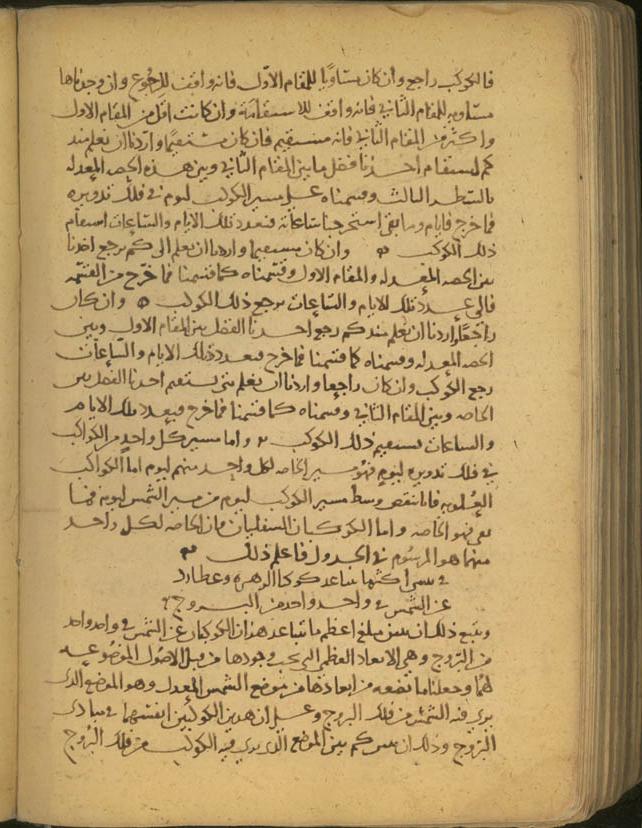 فالكوكب راجع وان كان مساويا للمقام الاول فانه واقف للرجوع وان وجدناها
مساويه للمقام الثاني فانه واقف للاستقامة وان كانت اقل من المقام الاول
واكثر من المقام الثاني فانه مستقيم فان كان مستقيما واردنا ان نعلم منذ
كم استقام اخذنا فضل ما بين المقام الثاني وبين هذه الحصه المعدله
بالسطر الثالث وقسمناه على مسير الكوكب ليوم في فلك تدويره
فما خرج فايام وما بقى استخرجنا ساعاته فبعدد تلك الايام والساعات استقام
ذلك الكوكب وان كان مستقيما واردنا ان نعلم الى كم يرجع اخذنا
بين الحصه المعدله والمقام الاول وقسمناه كما قسمنا فما خرج من القسمه
فالى عدد تلك الايام والساعات يرجع ذلك الكوكب وان كان
راجعا واردنا ان نعلم منذ كم رجع اخذنا الفضل بين المقام الاول وبين
الحصه المعدله وقسمناه كما قسمنا فما خرج فبعدد تلك الايام والساعات
رجع الكوكب وان كان راجعا واردنا ان نعلم متى يستقيم اخذنا الفضل بين
الخاصه وبين المقام الثاني وقسمناه كما قسمنا فما خرج فبعدد تلك الايام
والساعات يستقيم ذلك الكوكب واما مسير كل واحد من الكواكب
في فلك تدويره ليوم فهو مسير الخاصه لكل واحد منهم ليوم اما الكواكب
العلويه فانا ننقص وسط مسير الكوكب ليوم من مسير الشمس ليوم فما
بقى فهو الخاصه واما الكوكبان السفليان فان الخاصه لكل واحد
منهما هو المرسوم في الجدول فاعلم ذلك
في اكثر ما يتباعد كوكبا الزهره وعطارد
عن الشمس في واحد واحد من البروج
ويتبع ذلك ان نبين مبلغ اعظم ما يتباعد هذان الكوكبان عن الشمس في واحد واحد
من البروج وهى الابعاد العظمى التي يجب وجودها من قبل الاصول الموضوعه
لهما وجعلنا ما نضعه من ابعادها من موضع الشمس المعدل وهو الموضع الذى
يرى فيه الشمس من فلك البروج وعلى ان هذين الكوكبين انفسهما في مبادى
البروج وذلك ان كم بين الموضع الذى يرى فيه الكوكب من فلك البروج